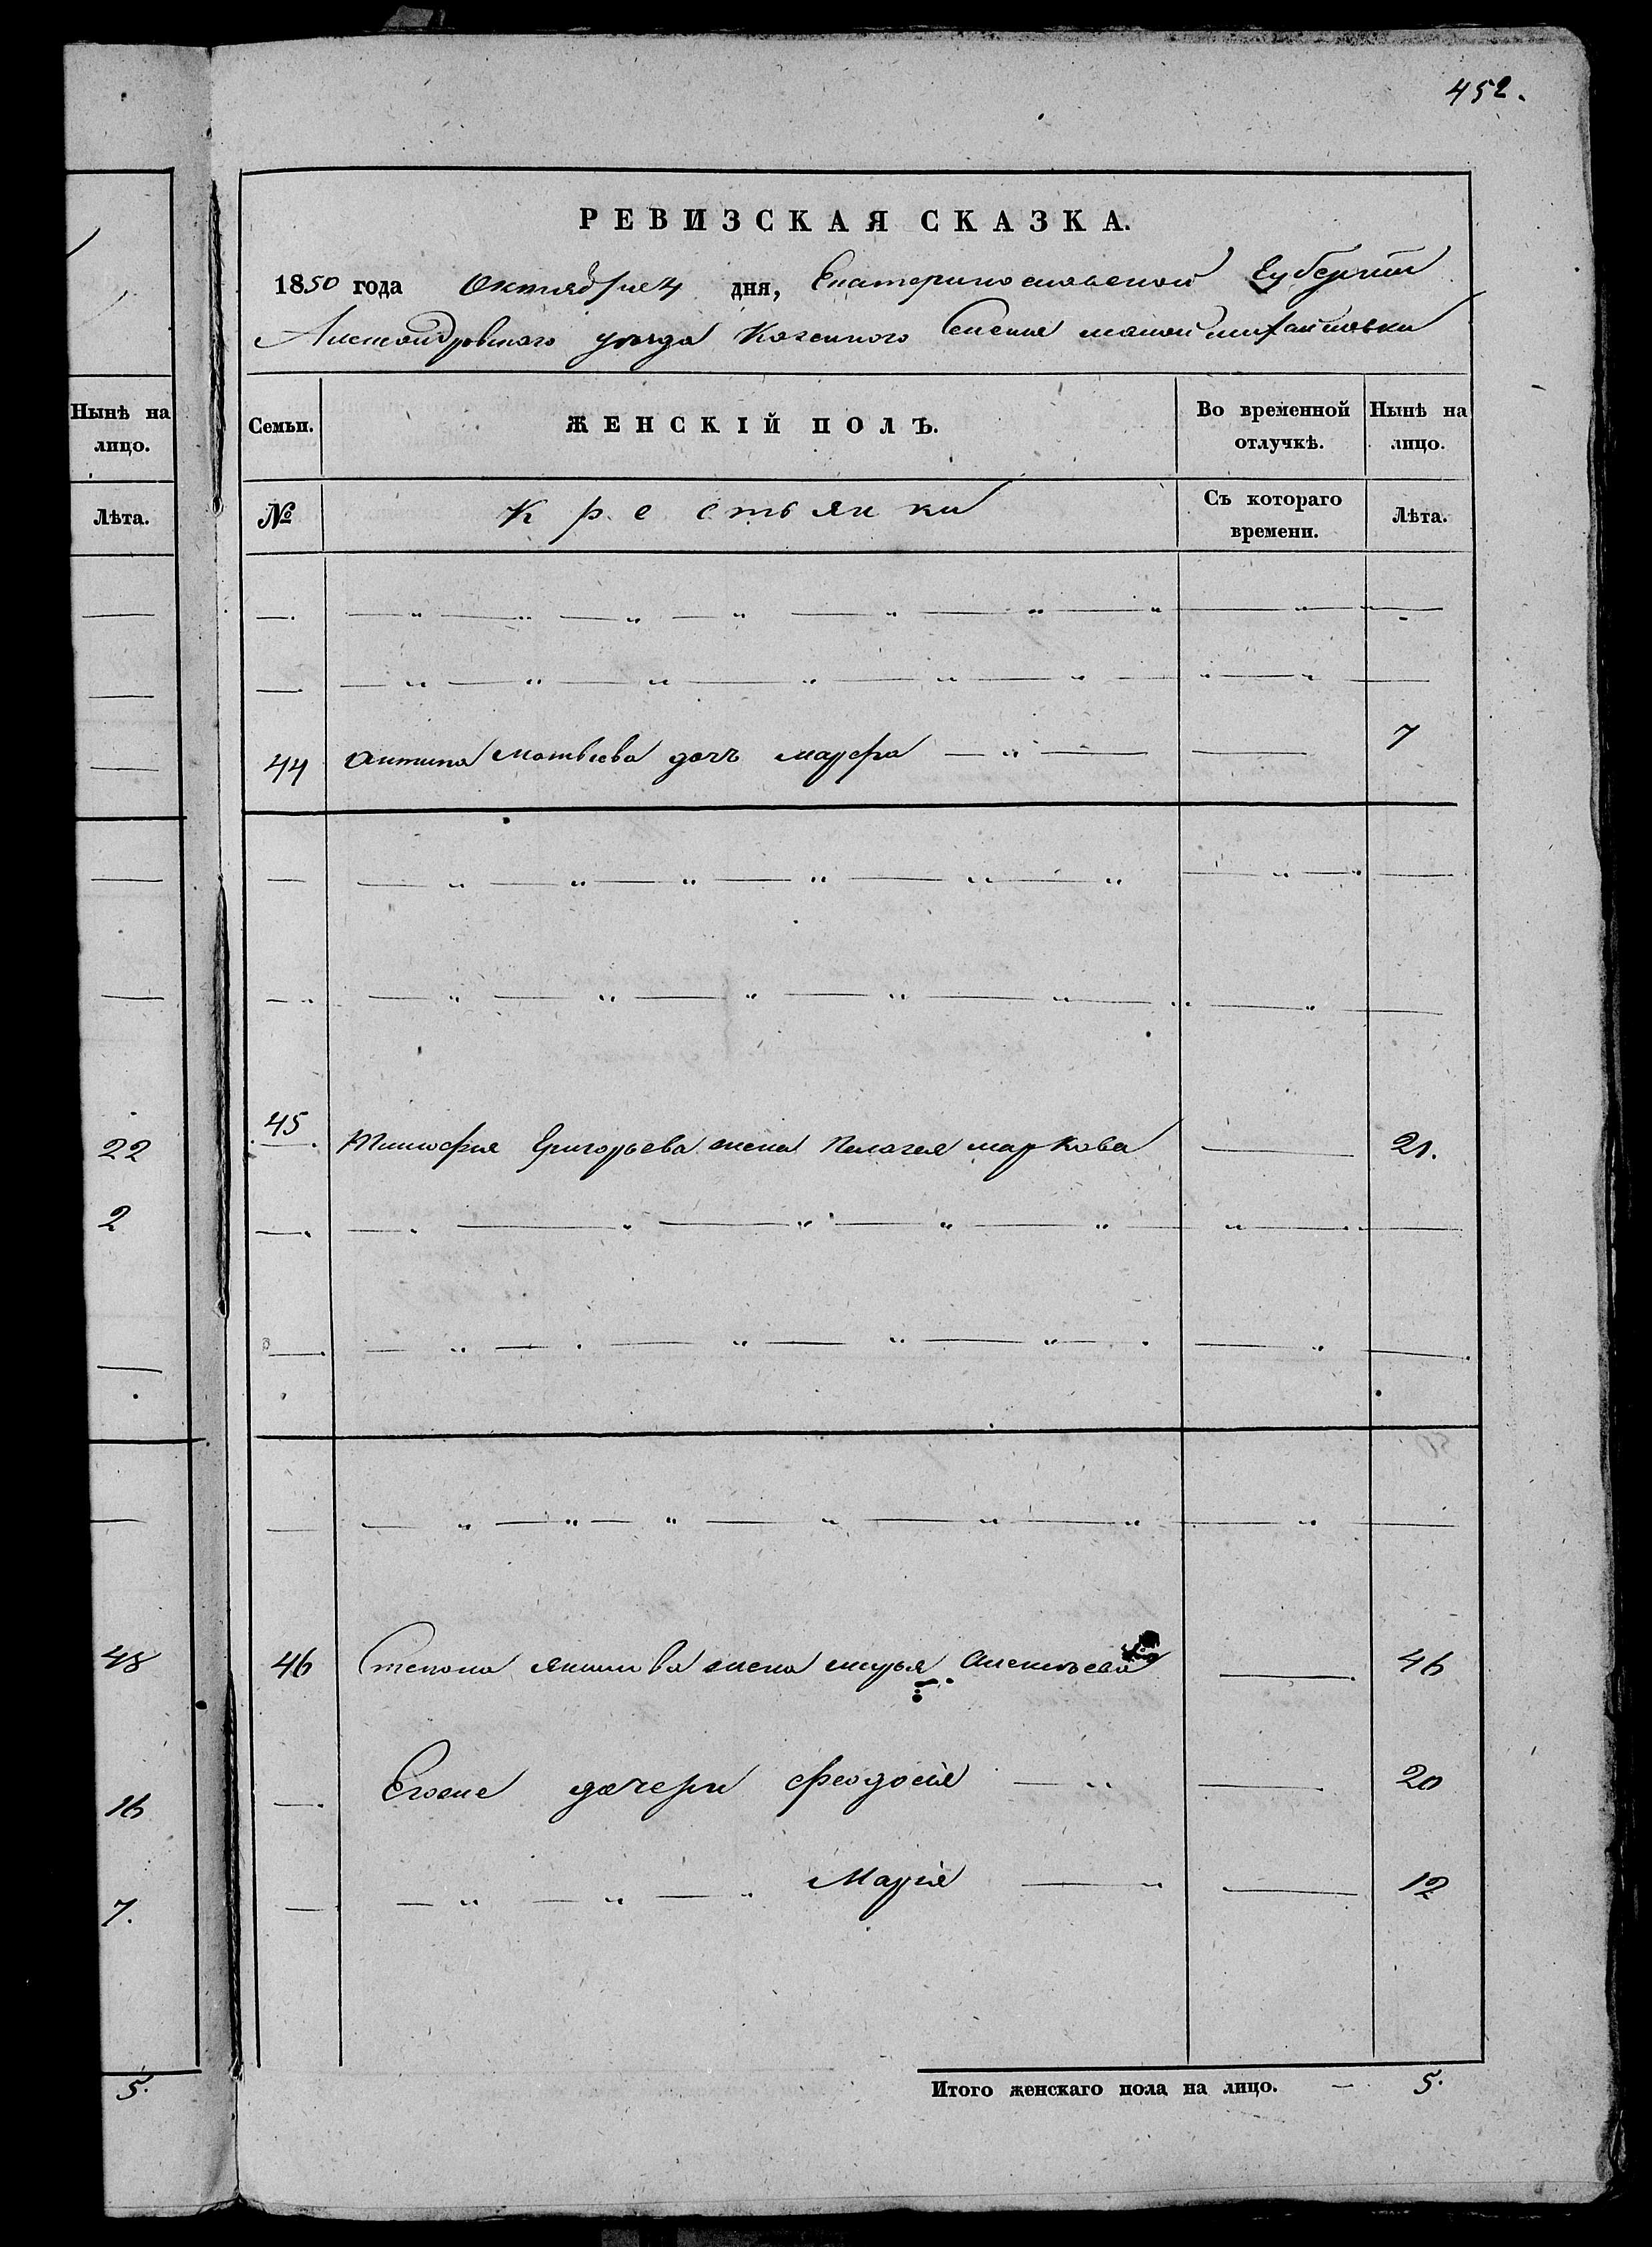 452.
РЕВИЗСКАЯ СКАЗКА.
1850 года Октября 4 дня, Екатеринославской Губернии
Александровского уезда Казенного Селения малой михайловки
Нынѣ на лицо.
Семьи.
ЖЕНСКІЙ ПОЛЪ.
Во временной отлучкѣ.
Нынѣ на лицо.
Лѣта.
№
Крестьянки
Съ котораго времени.
Лѣта.
44 Антипа Матвѣева дочь марфа 7
22
45 Тимофея Григорьева жена Пелагея маркова 21.
2
48
46 Степана жена марья Алексѣева 46
16
Егоже дочери феодосія 20
7.
Марія 12
5.
Итого женскаго пола на лицо. — 5.